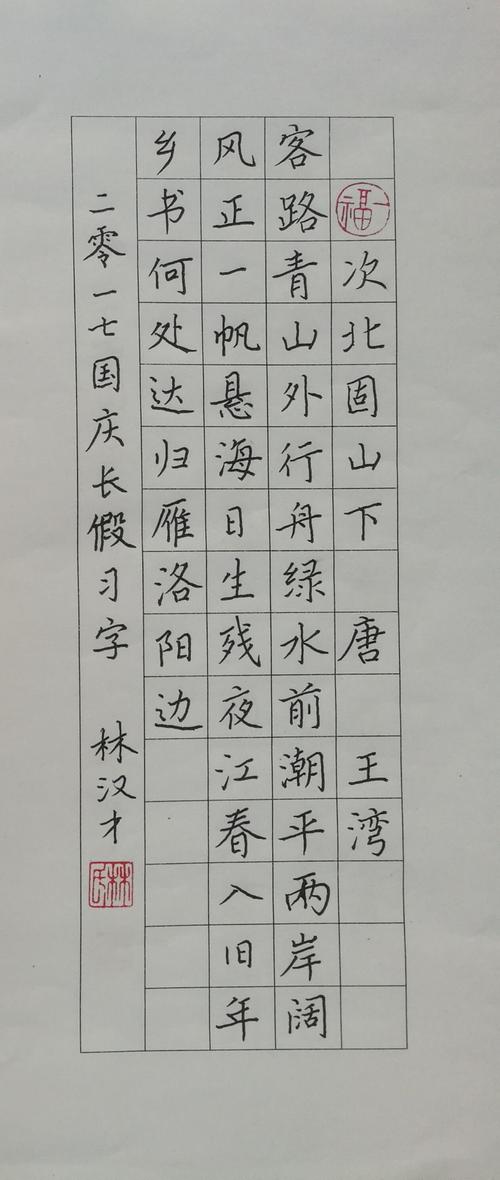 福
次北固山下 唐 王湾
客路青山外行舟绿水前潮平两岸阔
风正一帆悬海日生残夜江春入旧年
乡书何处达归雁洛阳边
二零一七国庆长假习字 林汉才
林氏